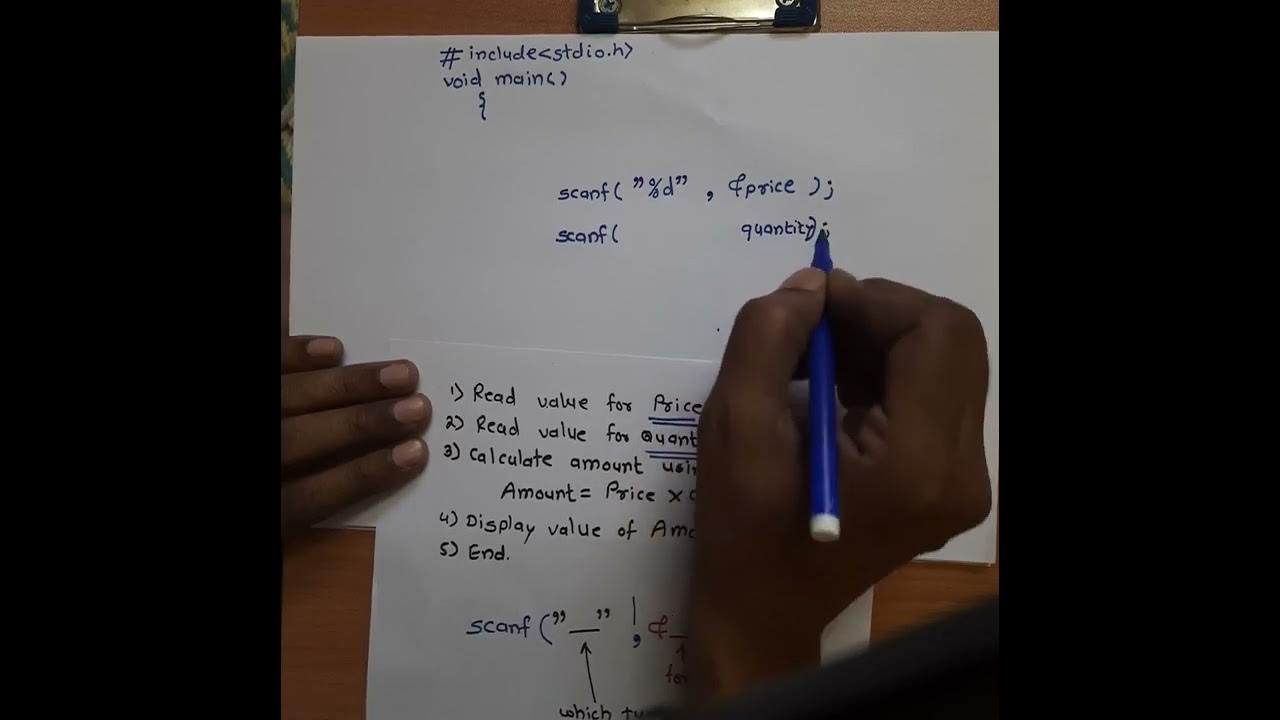 # include<stdio.h>
void main()
{
scanf( "%d" , &price );
scanf( quantity);
1) Read value for Price
2) Read value for
3) Calculate amount
Amount = Price ×
4) Display value of
5) End.
scanf ("__" , &
which